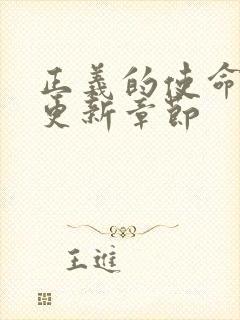 正義的使命
更新章節
王進